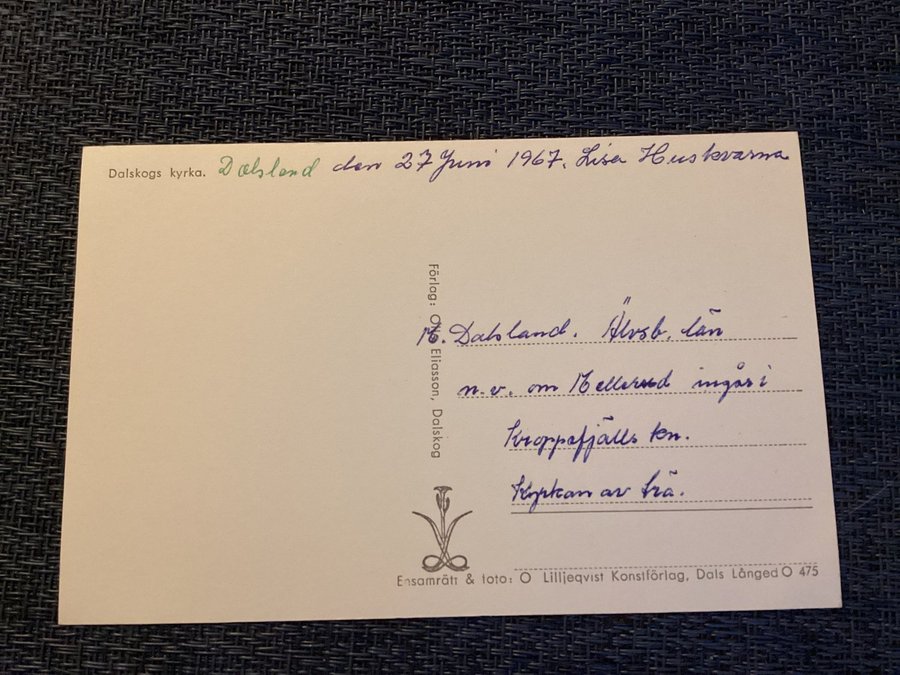 Dalskogs kyrka. Dalsland den 27 Juni 1967. Lisa Huskvarna
Förlag: O. Eliasson, Dalskog
M. Dalsland. Älvsb. län
n.v. om Mellerud ingår i
Kroppefjälls kn.
Kyrkan av trä.
Ensamrätt & foto: O Lilljeqvist Konstförlag, Dals Långed O 475